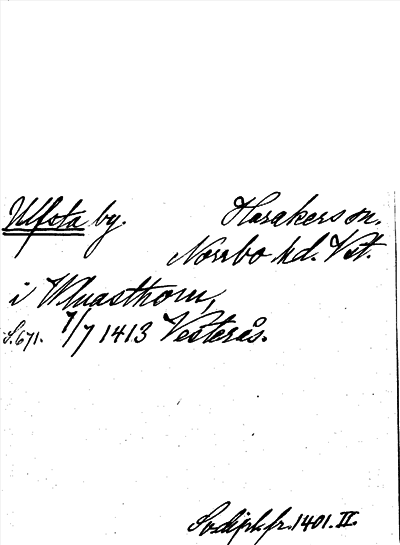 Ulfsta by. Harakers sn.
Norrbo hd. Vst.
i Wluasthorn,
S. 671. 7/7 1413 Vesterås.
Sv dipl. fr. 1401. II.